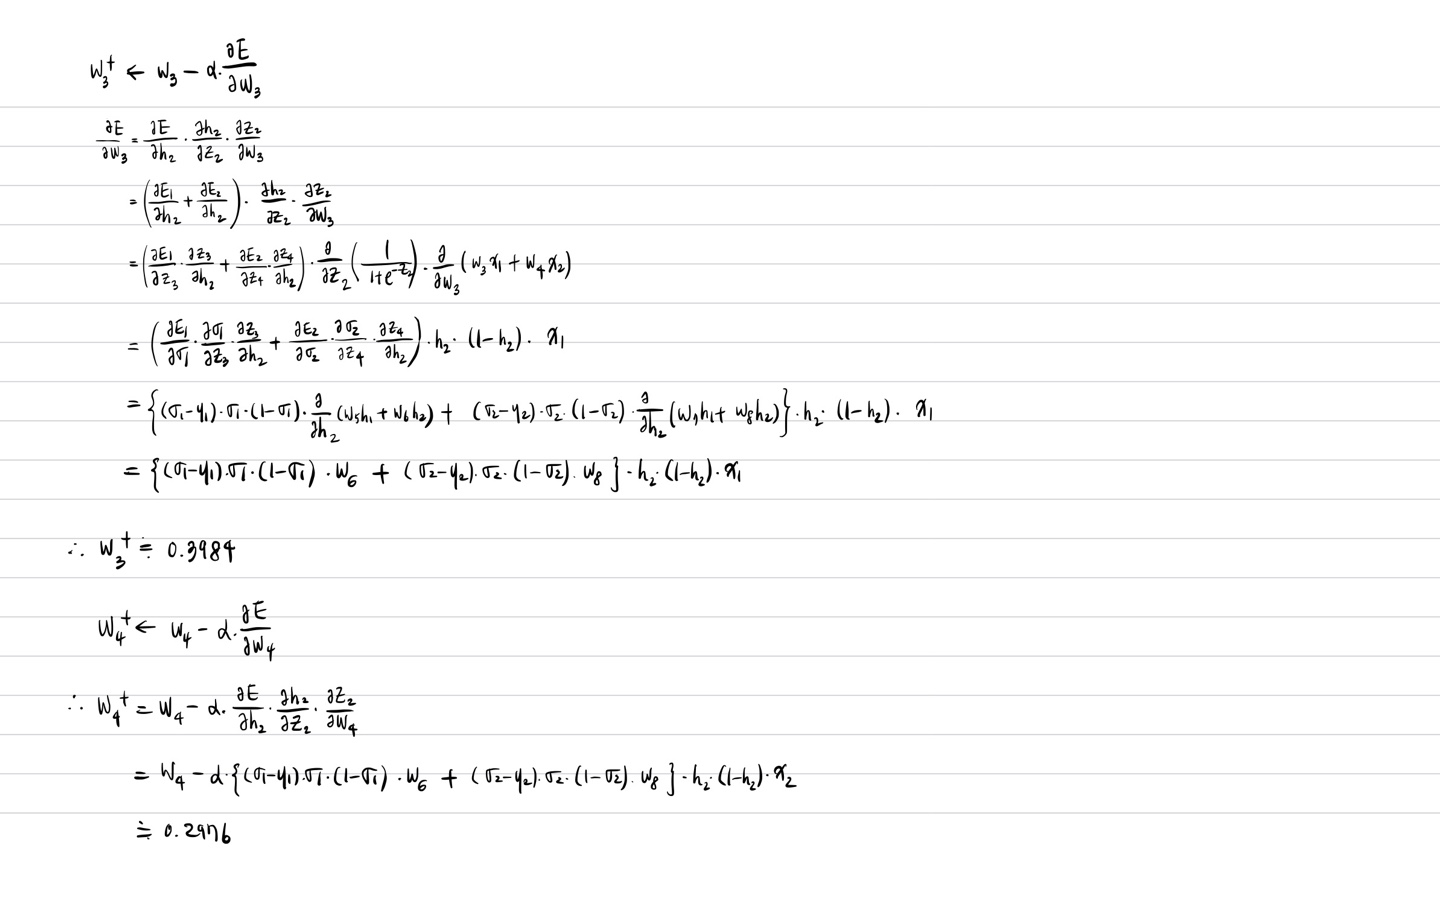 w₃⁺ ← w₃ − α·∂E/∂w₃
∂E/∂w₃ = ∂E/∂h₂ · ∂h₂/∂z₂ · ∂z₂/∂w₃
= (∂E₁/∂h₂ + ∂E₂/∂h₂) · ∂h₂/∂z₂ · ∂z₂/∂w₃
= (∂E₁/∂z₃ · ∂z₃/∂h₂ + ∂E₂/∂z₄ · ∂z₄/∂h₂) · ∂/∂z₂ (1/(1+e^(−z₂))) · ∂/∂w₃ (w₃x₁ + w₄x₂)
= (∂E₁/∂σ₁ · ∂σ₁/∂z₃ · ∂z₃/∂h₂ + ∂E₂/∂σ₂ · ∂σ₂/∂z₄ · ∂z₄/∂h₂) · h₂ · (1−h₂) · x₁
= {(σ₁−y₁)·σ₁·(1−σ₁)·∂/∂h₂ (w₅h₁ + w₆h₂) + (σ₂−y₂)·σ₂·(1−σ₂)·∂/∂h₂ (w₇h₁ + w₈h₂)} · h₂ · (1−h₂) · x₁
= {(σ₁−y₁)·σ₁·(1−σ₁)·w₆ + (σ₂−y₂)·σ₂·(1−σ₂)·w₈} · h₂·(1−h₂)·x₁
∴ w₃⁺ ≒ 0.3984
w₄⁺ ← w₄ − α·∂E/∂w₄
∴ w₄⁺ = w₄ − α·∂E/∂h₂ · ∂h₂/∂z₂ · ∂z₂/∂w₄
= w₄ − α·{(σ₁−y₁)·σ₁·(1−σ₁)·w₆ + (σ₂−y₂)·σ₂·(1−σ₂)·w₈} · h₂·(1−h₂)·x₂
≒ 0.2976